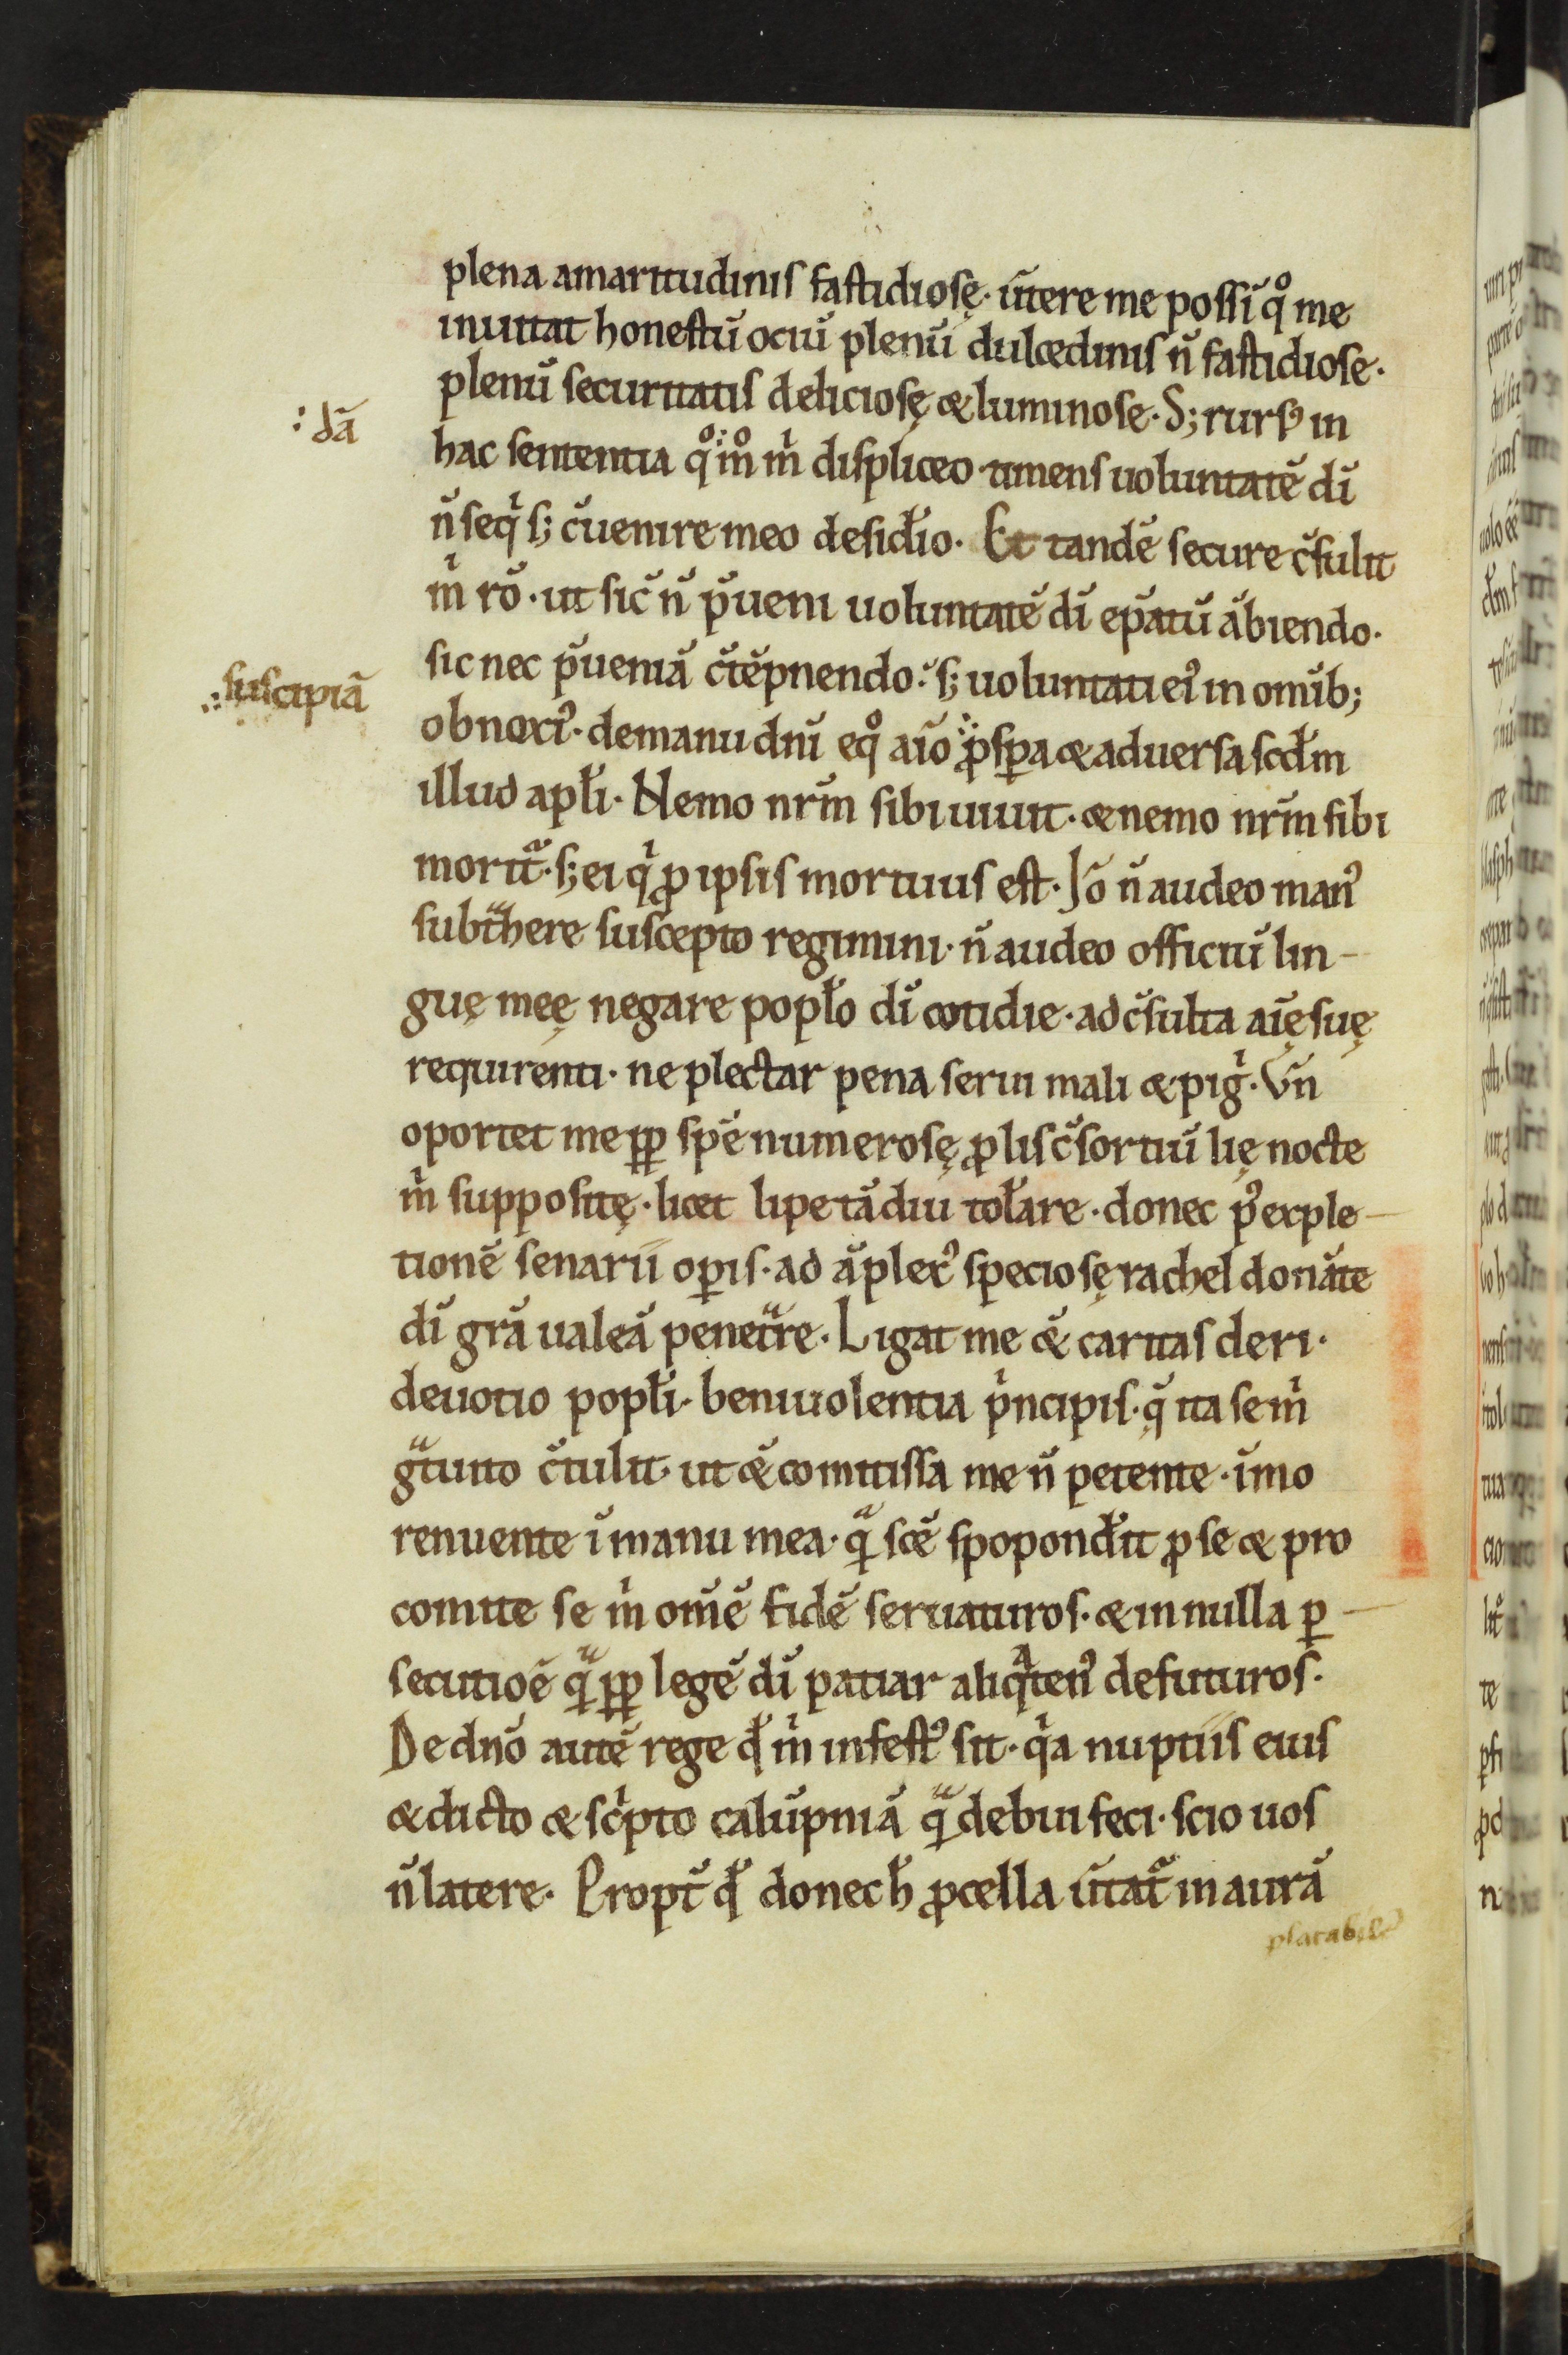 plena amaritudinis fastidiosę. ūtere me possī qͦ me
inuitat honestū ociū plenū dulcedinis n̄ fastidiose.
plenū securitatis deliciosę & luminose. S; rursꝰ in
: dā
hac sententia qͦm̊ m̍ displiceo timens uoluntatē dī
n̄ seq̍ s; c̄uenire meo desid̄io. Et tandē secure c̄sulit
m̍ rō. ut sic̄ n̄ p̄ueni uoluntatē dī ep̄atū ābiendo.
sic nec p̄ueniā c̄tēpnendo. s; uoluntati eiꝰ in omīb;
suscipiā
obnoxiꝰ. de manu dn̄i eqͦ aīo ꝓsꝑa & aduersa scd̄m
illud apl̄i. Nemo nr̄m sibi uiuit. & nemo nr̄m sibi
morit̄. s; ei q̍ ꝓ ipsis mortuus est. Iō n̄ audeo manꝰ
subtͣhere suscepto regimini. n̄ audeo officiū lin-
guę meę negare popl̄o dī cotidie. ad c̄sulta aīę suę
requirenti. ne plectar pena serui mali & pig̍. Vn̄
oportet me ꝑꝑ spē numerosę ꝓlis c̄sortiū lię nocte
m̍ suppositę. licet lipe tādiu tol̄are. donec pꝰ exple-
tionē senarii oꝑis. ad āplexꝰ speciosę rachel donāte
dī grā̄ ualeā penetͣre. Ligat me & caritas cleri.
deuotio popl̄i. beniuolentia p̍ncipis. q̄ ita se m̍
gͣtuito c̄tulit. ut & comitissa me n̄ petente. īmo
renuente ī manu mea. qͣ scē spopond̄it ꝓ se & pro
comite se m̍ om̄ē fidē seruaturos. & in nulla ꝑ-
secutiōe qͣ ꝑꝑ legē dī patiar aliqͣtenꝰ defuturos.
De dn̄o autē rege qd̄ m̍ infestꝰ sit. q̍a nuptiis eius
& dicto & sc̍pto calūpniā qͣ debui feci. scio uos
n̄ latere. Propt̄ qd̄ donec h̄ ꝓcella ūtat̄ in aurā